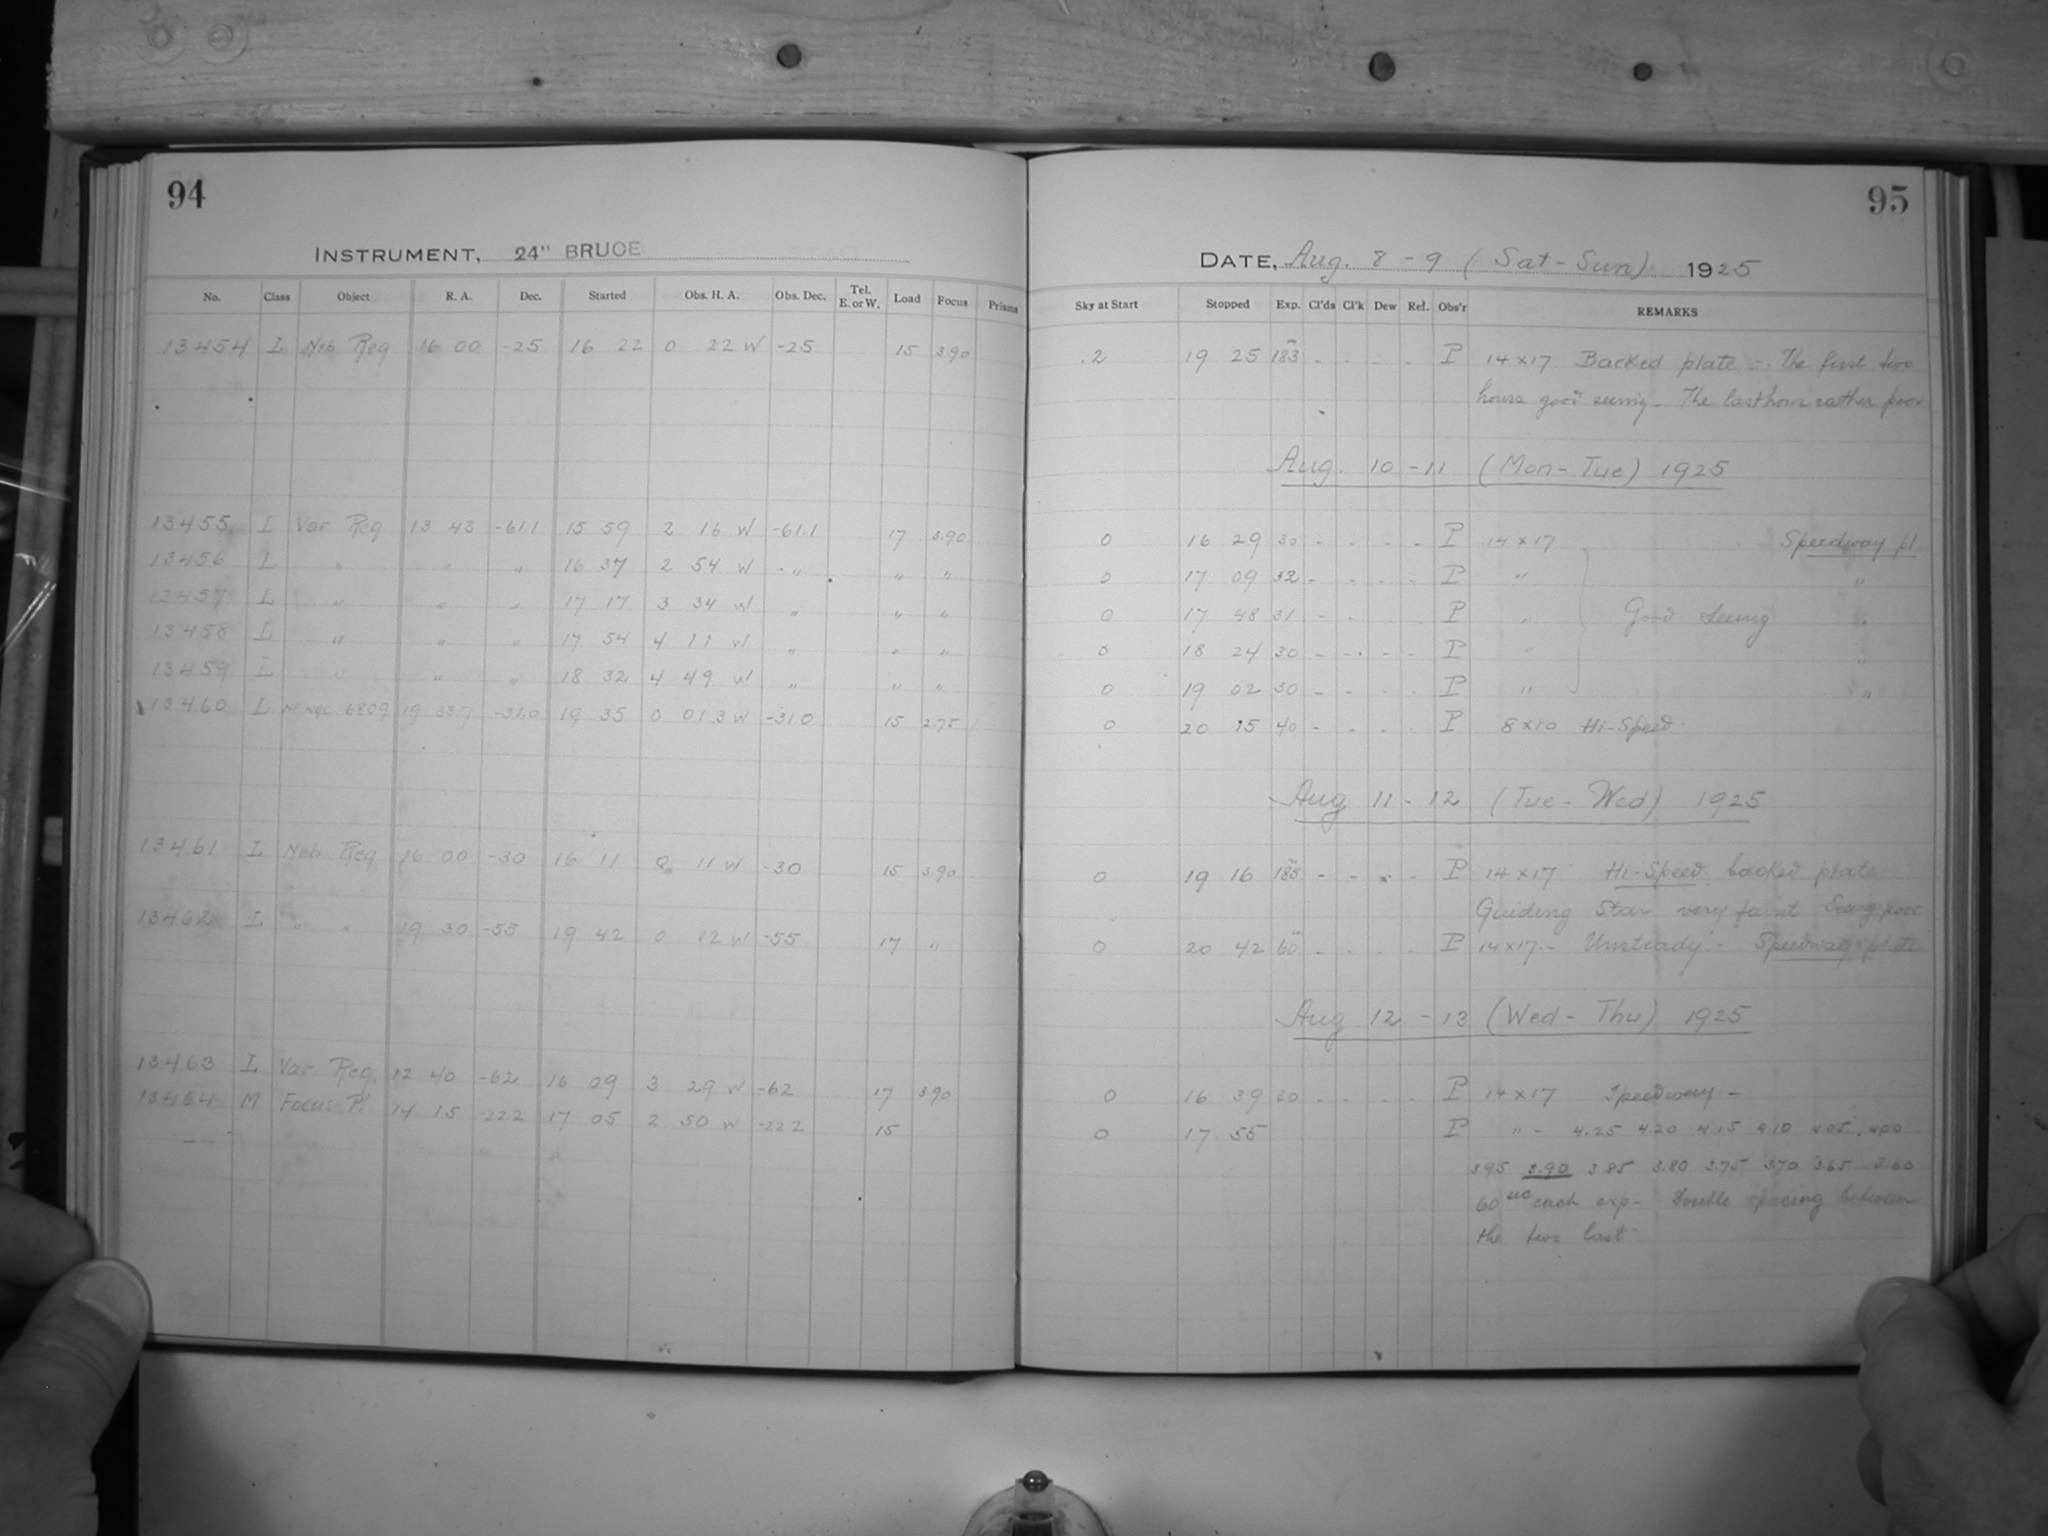 94
INSTRUMENT, 24" BRUCE
No. Class Object R. A. Dec. Started Obs. H. A. Obs. Dec. Tel. E. or W. Load Focus Prisms
13454 L Neb Reg 16 00 -25 16 22 0 22 W -25 15 3.90
13455 L Var Reg 13 43 -61.1 15 59 2 16 W -61.1 17 3.90
13456 L " " " 16 37 2 54 W " " "
13457 L " " " 17 17 3 34 W " " "
13458 L " " " 17 54 4 11 W " " "
13459 L " " " 18 32 4 49 W " " "
13460 L Nr NGC 6809 19 33.7 -31.0 19 35 0 01.3 W -31.0 15 2.75
13461 L Neb Reg 16 00 -30 16 11 0 11 W -30 15 3.90
13462 L " " 19 30 -55 19 42 0 12 W -55 17 "
13463 L Var Reg. 12 40 -62 16 09 3 29 W -62 17 3.90
13464 M Focus Pl 14 15 -22.2 17 05 2 50 W -22.2 15
95
DATE, Aug. 8 - 9 (Sat - Sun) 1925
Sky at Start Stopped Exp. Cl'ds Cl'k Dew Ref. Obs'r REMARKS
.2 19 25 183m - - - - P 14 x 17 Backed plate - The first two
hours good seeing. The last hour rather poor
Aug. 10 - 11 (Mon - Tue) 1925
0 16 29 30 - - - - P 14 x 17 Speedway pl
0 17 09 32 - - - - P " "
0 17 48 31 - - - - P " Good Seeing "
0 18 24 30 - - - - P " "
0 19 02 30 - - - - P " "
0 20 15 40 - - - - P 8 x 10 Hi-Speed
Aug 11 - 12 (Tue - Wed) 1925
0 19 16 185m - - - - P 14 x 17 Hi-Speed backed plate
Guiding Star very faint Seeing poor
0 20 42 60m - - - - P 14 x 17 - Unsteady - Speedway plate
Aug 12 - 13 (Wed - Thu) 1925
0 16 39 30 - - - - P 14 x 17 Speedway -
0 17 55 P " - 4.25 4.20 4.15 4.10 4.05 4.00
3.95 3.90 3.85 3.80 3.75 3.70 3.65 3.60
60 sec each exp - Double spacing between
the two last